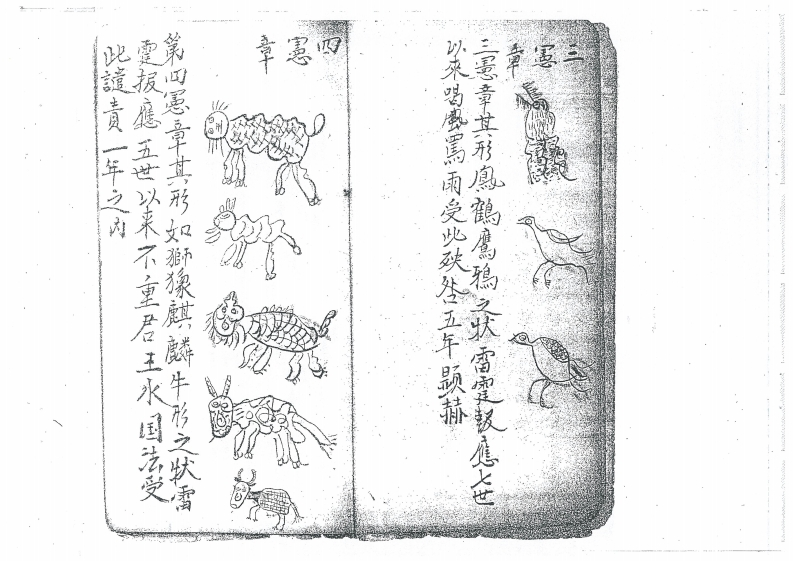 三憲章
三憲章其形鳳鶴鷹鴉之状雷霆報應七世
以來喝風罵雨受此殃咎五年顕赫
四憲章
第四憲章其形如獅獬麒麟牛形之状雷
霆报應五世以来不重君王水国法受
此譴責一年之内